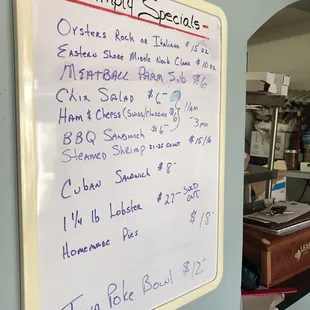 Simply Specials
Oysters Rock or Italiano $15 doz
Eastern Shore Middle Neck Clams $10 doz
MEATBALL PARM Sub $6
Chix Salad $6-
Ham & Cheese (Swiss/Cheddar) $6 11am
BBQ Sandwich $6- -3pm
Steamed Shrimp 21-25 count $15/lb
Cuban Sandwich $8-
1 1/4 lb Lobster $22- SOLD OUT
Homemade Pies $18-
Tuna Poke Bowl $12-